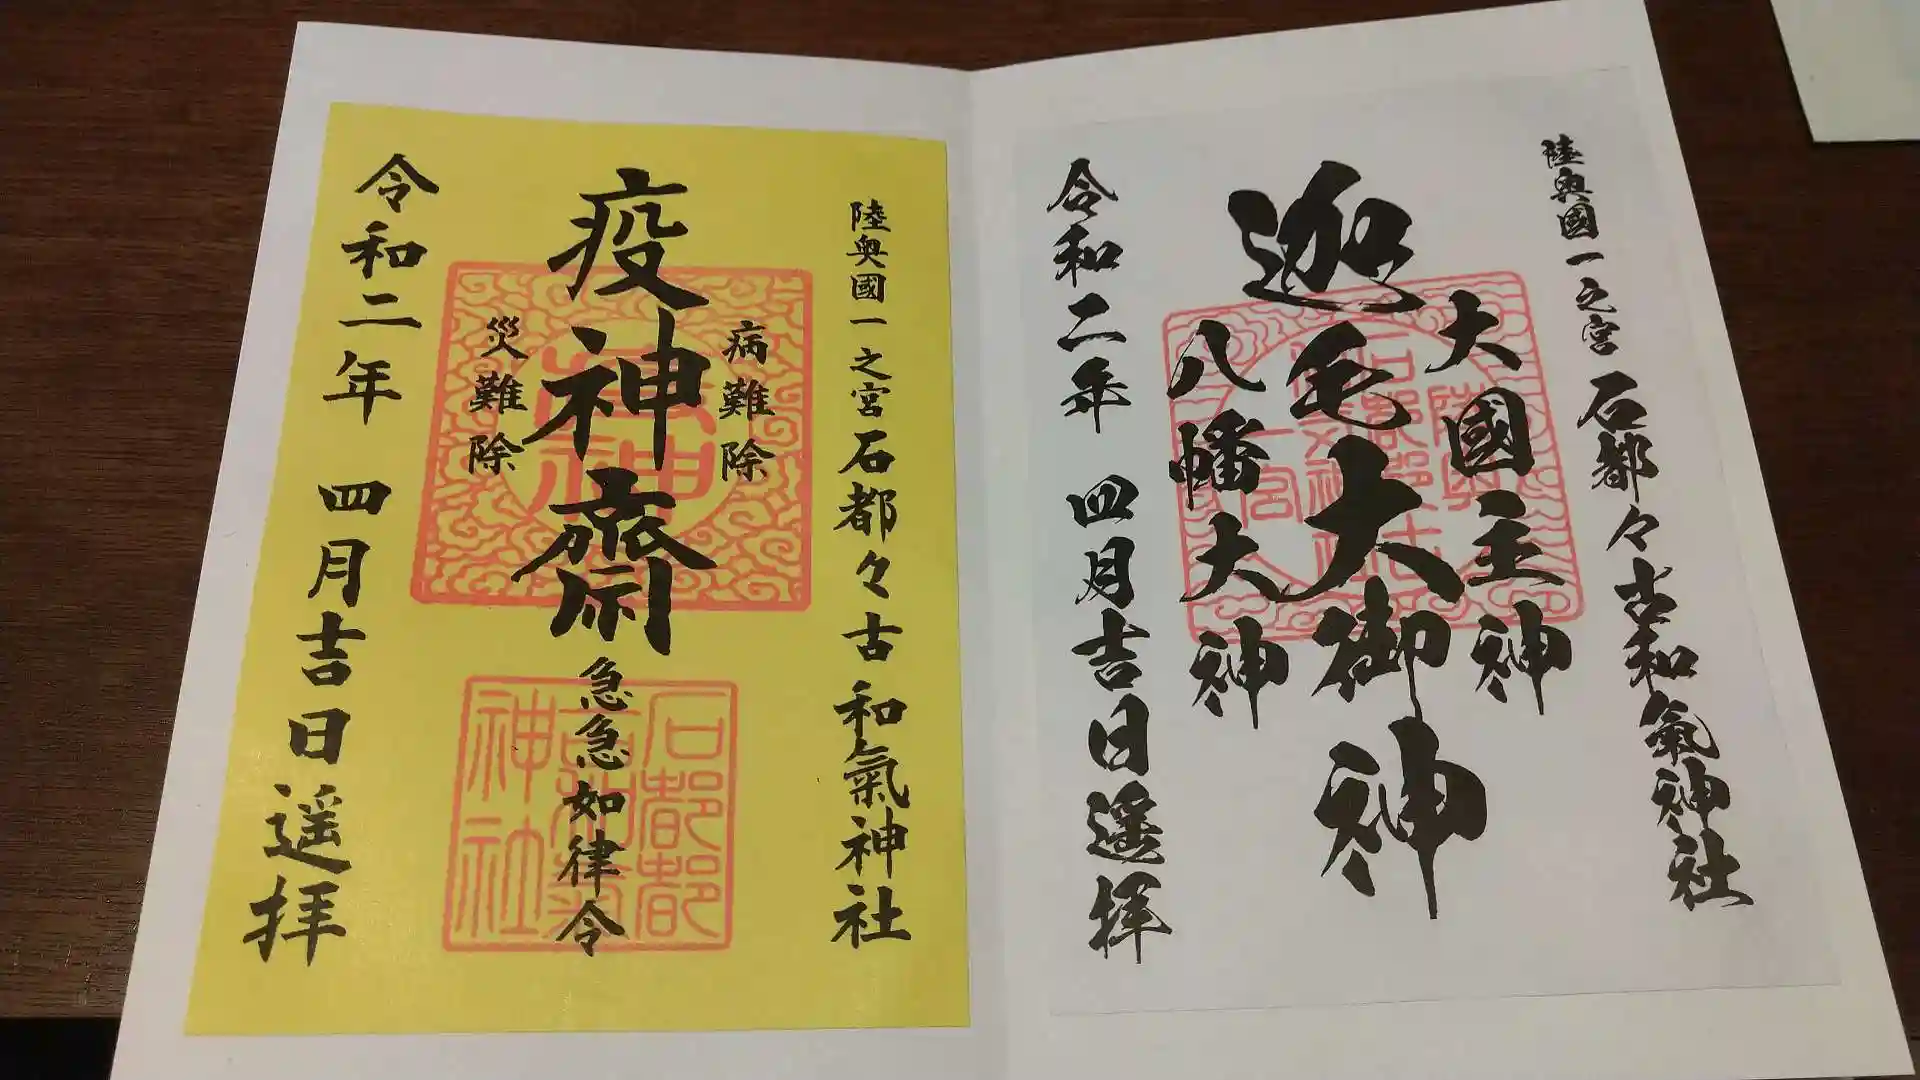 陸奥國一之宮 石都々古和氣神社
大國主神
迦毛大御神
八幡大神
令和二年 四月吉日遥拝
陸奥國一之宮石都々古和氣神社
病難除
疫神齋
災難除
急急如律令
石都都
古和気
神社
令和二年 四月吉日遥拝